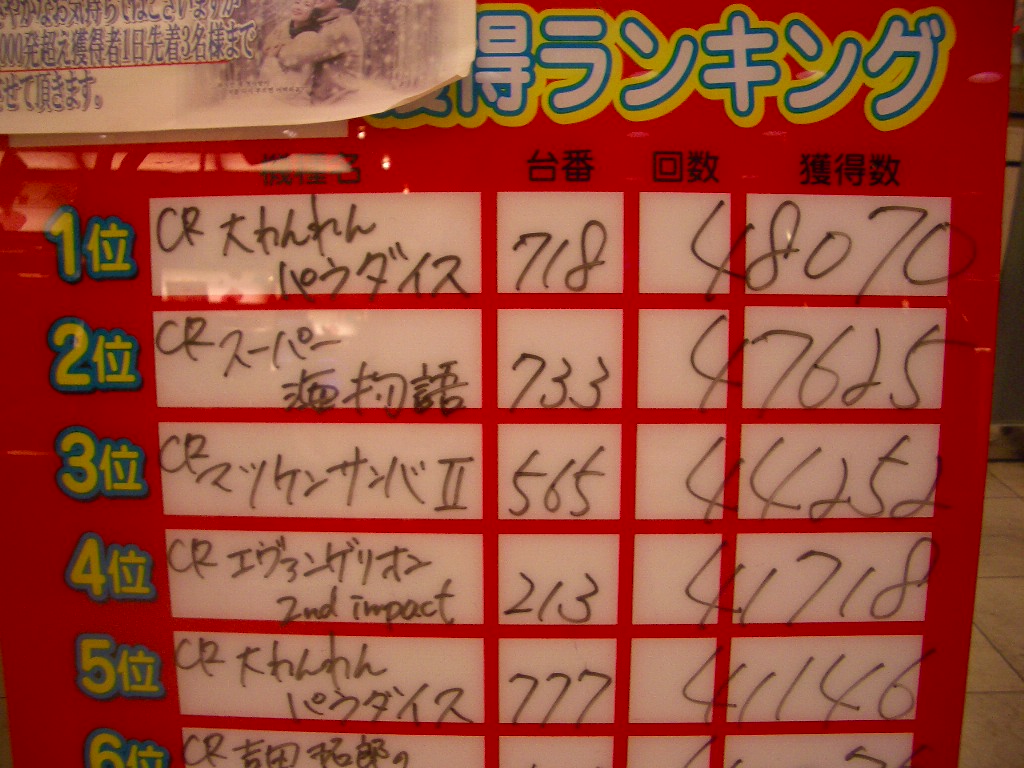 やかなお気持ちはございますが
000発超え獲得者1日先着3名様まで
せて頂きます。
獲得ランキング
機種名 台番 回数 獲得数
1位 CR 大わんわんパラダイス 718 48070
2位 CR スーパー海物語 733 47625
3位 CR マツケンサンバⅡ 565 44252
4位 CR エヴァンゲリオン 2nd impact 213 41718
5位 CR 大わんわんパラダイス 777 41146
6位 CR 吉田拓郎の